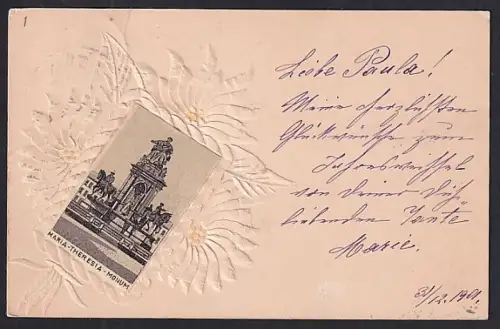 1
Liebe Paula!
Meine herzlichsten
Glückwünsche zum
Jahreswechsel
von Deiner Dich
liebenden Tante
Marie.
31/12. 1901.
MARIA-THERESIA-MONUM.